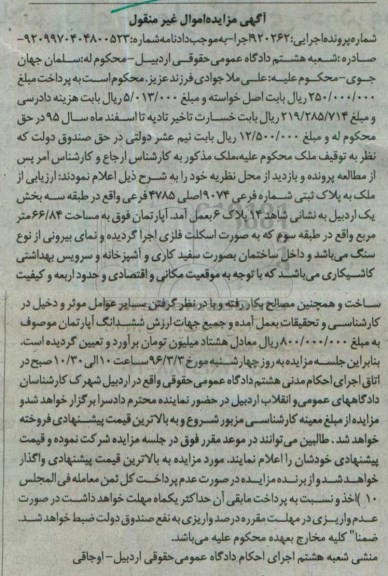 آگهی مزایده اموال غیر منقول
شماره پرونده اجرایی: ۹۲۰۲۶۲اجرا-به موجب دادنامه شماره: ۹۲۰۹۹۷۰۴۰۴۸۰۰۵۲۳-
صادره :شعبه هشتم دادگاه عمومی حقوقی اردبیل- محکوم له:سلمان جهان
جوی-محکوم علیه: علی ملا جوادی فرزند عزیز، محکوم است به پرداخت مبلغ
۲۵۰/۰۰۰/۰۰۰ ریال بابت اصل خواسته و مبلغ ۵/۰۱۳/۰۰۰ ریال بابت هزینه دادرسی
و مبلغ ۲۱۹/۲۸۵/۷۱۴ ریال بابت خسارت تاخیر تادیه تا اسفند ماه سال ۹۵ در حق
محکوم له و مبلغ ۱۲/۵۰۰/۰۰۰ ریال بابت نیم عشر دولتی در حق صندوق دولت که
نظر به توقیف ملک محکوم علیه،ملک مذکور به کارشناس ارجاع و کارشناس امر پس
از مطالعه پرونده و بازدید از محل نظریه خود را به شرح ذیل اعلام نمودند: ارزیابی از
ملک به پلاک ثبتی شماره فرعی ۹۰۷۴اصلی ۳۷۸۵ فرعی واقع در طبقه سه بخش
یک اردبیل به نشانی شاهد ۱۴ پلاک ۶ بعمل آمد. آپارتمان فوق به مساحت ۶۶/۸۴ متر
مربع واقع در طبقه سوم که به صورت اسکلت فلزی اجرا گردیده و نمای بیرونی از نوع
سنگ می باشد و داخل ساختمان بصورت سفید کاری و آشپزخانه و سرویس بهداشتی
کاشیکاری می باشند که با توجه به موقعیت مکانی و اقتصادی و حدود اربعه و کیفیت
ساخت و همچنین مصالح بکار رفته و با در نظر گرفتن سایر عوامل موثر و دخیل در
کارشناسی و تحقیقات بعمل آمده و جمیع جهات ارزش ششدانگ آپارتمان موصوف
به مبلغ ۸۰۰/۰۰۰/۰۰۰ ریال معادل هشتاد میلیون تومان برآورد و تعیین گردیده است.
بنابراین جلسه مزایده به روز چهارشنبه مورخ ۹۶/۳/۳ ساعت ۱۰ الی ۱۰/۳۰ صبح در
اتاق اجرای احکام مدنی هشتم دادگاه عمومی حقوقی واقع در اردبیل شهرک کارشناسان
دادگاههای عمومی و انقلاب اردبیل در حضور نماینده محترم دادسرا برگزار خواهد شد و
مزایده از مبلغ معینه کارشناسی مزبور شروع و به بالاترین قیمت پیشنهادی فروخته
خواهد شد . طالبین می توانند در موعد مقرر فوق در جلسه مزایده شرکت نموده و قیمت
پیشنهادی خودشان را اعلام نمایند. مورد مزایده به بالاترین قیمت پیشنهادی واگذار
خواهد شد و از برنده مزایده در صورت عدم پرداخت کل ثمن معامله فی المجلس
۱۰ )اخذ و نسبت به پرداخت مابقی آن حداکثر یکماه مهلت خواهد داشت در صورت
عدم واریزی در مهلت مقرره درصد واریزی به نفع صندوق دولت ضبط خواهد شد.
ضمنا" کلیه مخارج بعهده محکوم علیه می باشد.
منشی شعبه هشتم اجرای احکام دادگاه عمومی حقوقی اردبیل- اوجاقی